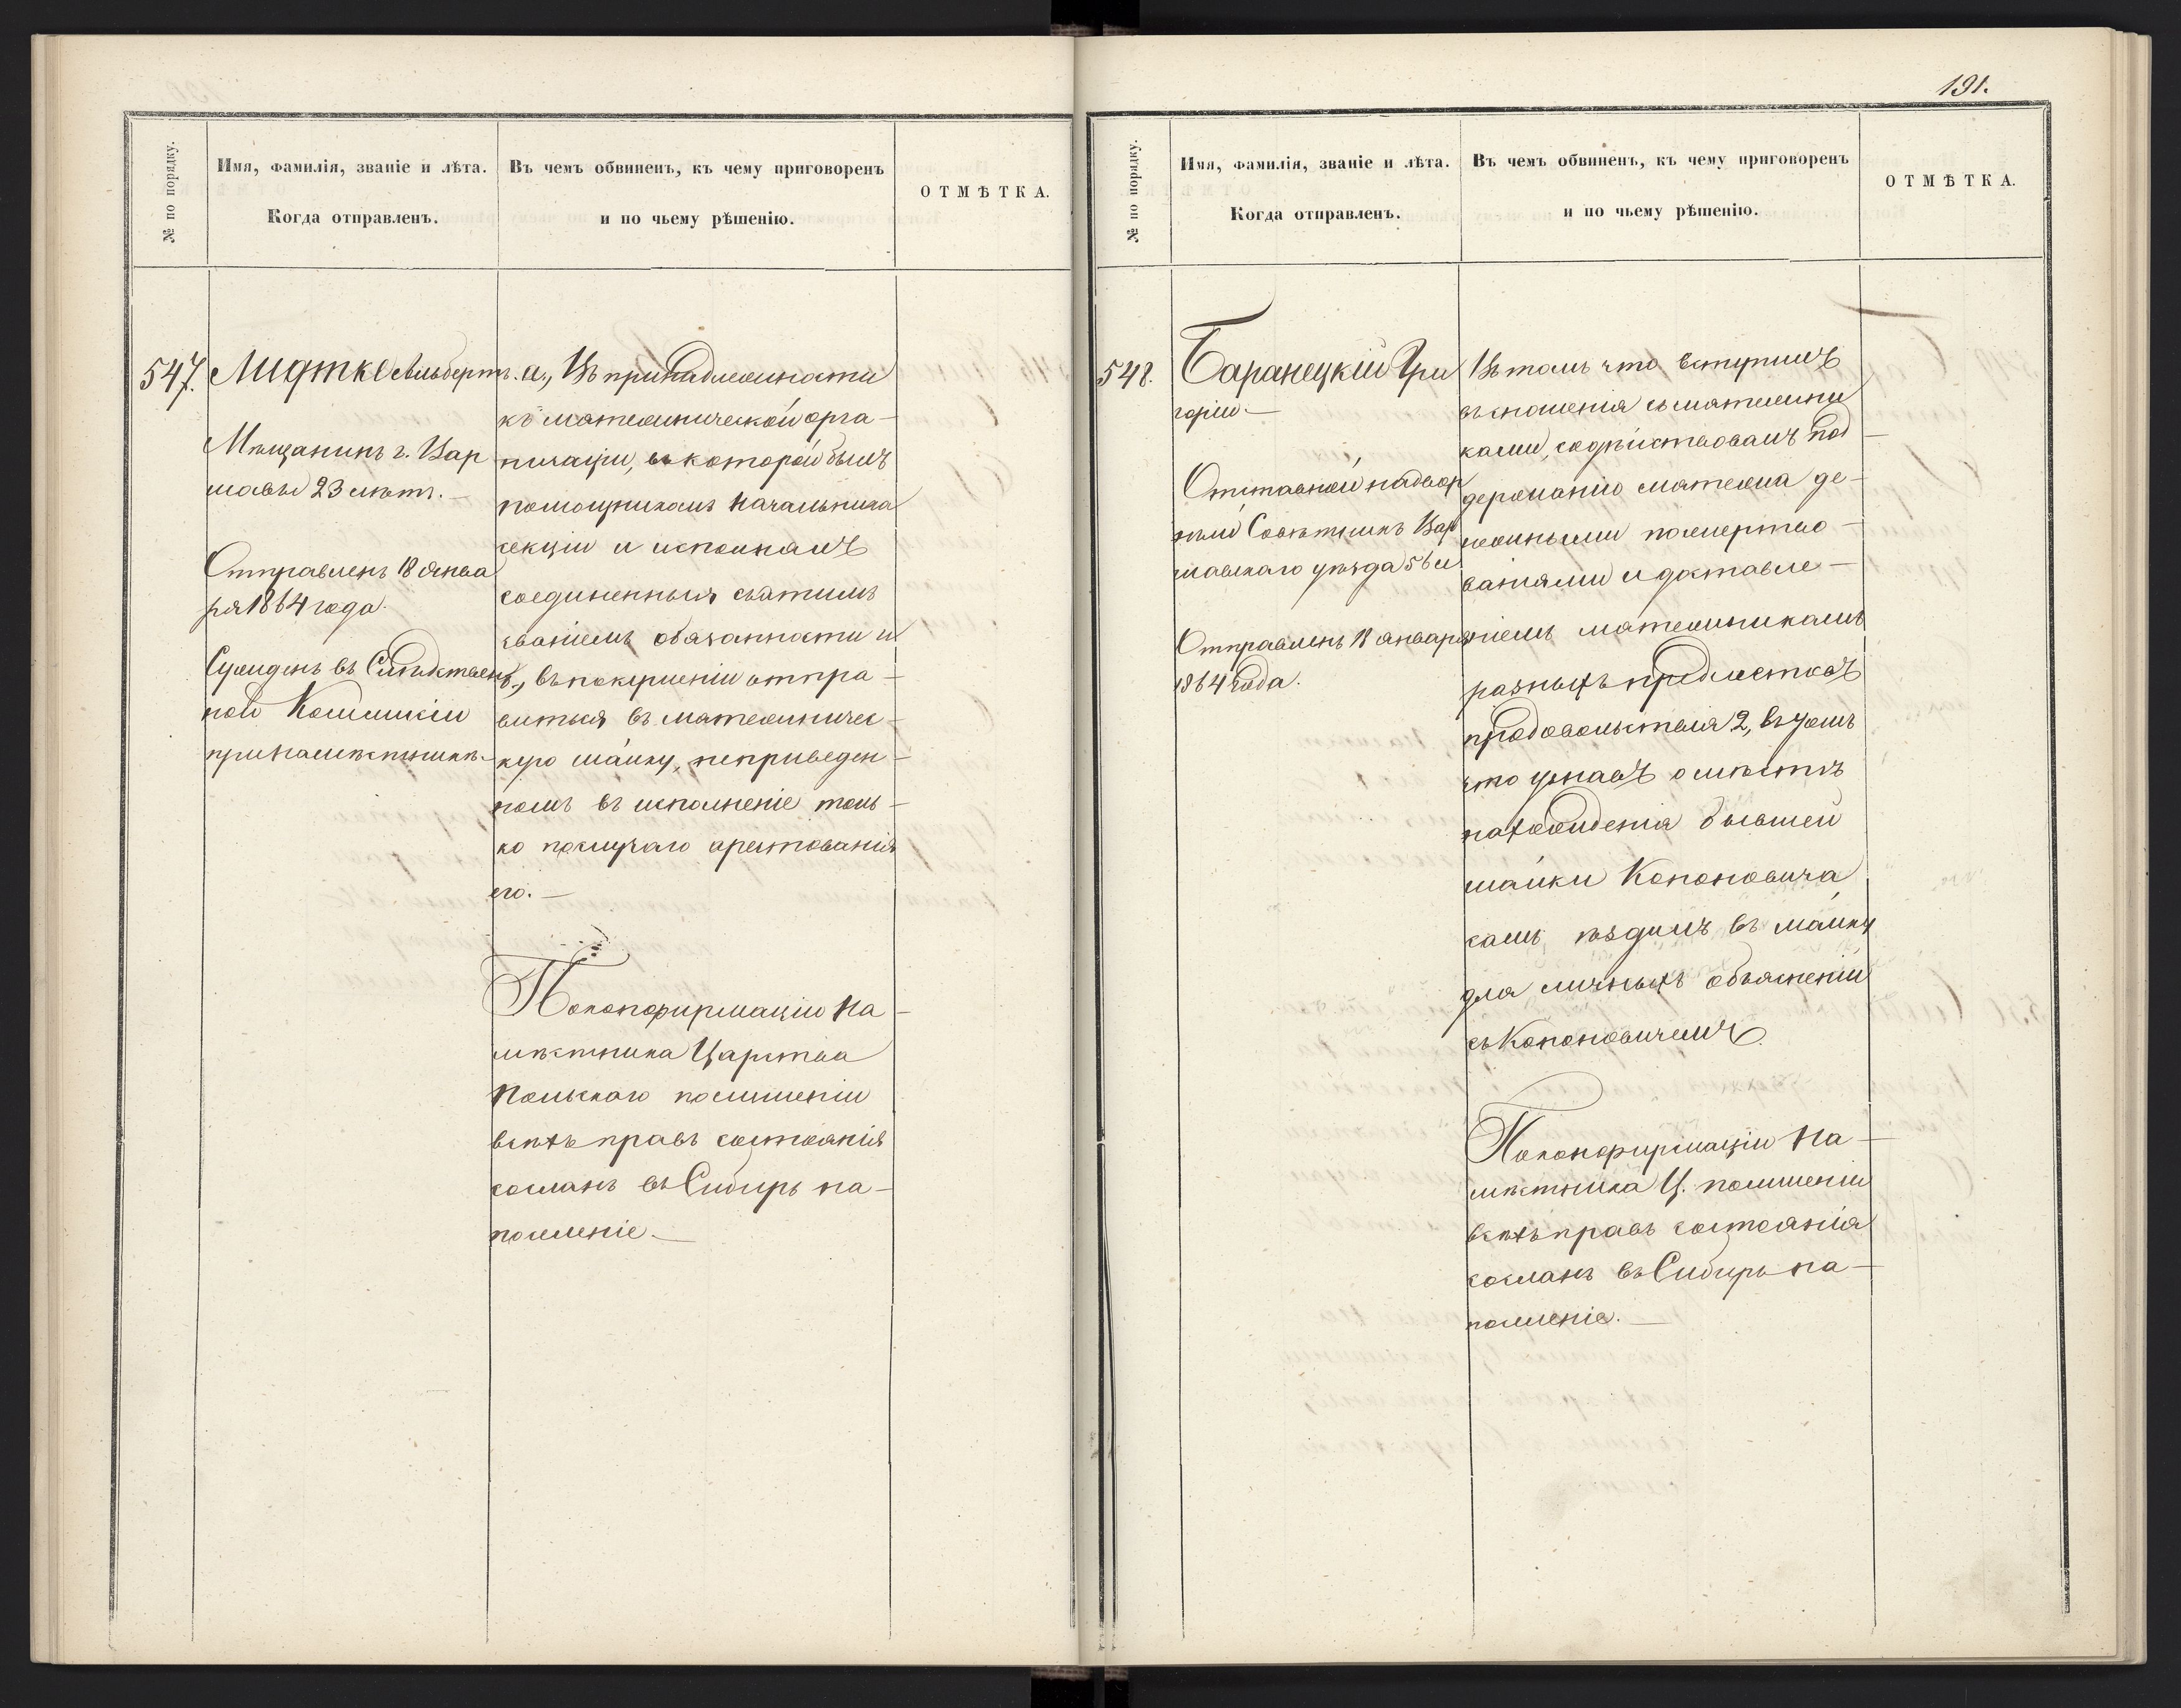 191.
№ по порядку.
Имя, фамилія, званіе и лѣта.
Когда отправленъ.
Въ чемъ обвиненъ, къ чему приговоренъ
и по чьему рѣшенію.
ОТМѢТКА.
547.
Лидтке Альбертъ.
Мѣщанинъ г. Вар
шавы 23 лѣтъ. —
Отправленъ 18 Янва
ря 1864 года.
Сужденъ въ Слѣдствен
ной Коммисіи
при Намѣстникѣ. —
а., Въ принадлежности
къ мятежнической орга —
низаціи, въ которой былъ
помощникомъ Начальника
секціи и исполнялъ
соединенныя съ этимъ
званіемъ обязанности и
б., въ покушеніи отпра —
виться въ мятежничес —
кую шайку, неприведен —
номъ въ исполненіе толь —
ко по случаю арестованія
его. —
По конфирмаціи На —
мѣстника Царства
Польскаго по лишеніи
всѣхъ правъ состоянія
сосланъ въ Сибирь на —
поселеніе. —
№ по порядку.
Имя, фамилія, званіе и лѣта.
Когда отправленъ.
Въ чемъ обвиненъ, къ чему приговоренъ
и по чьему рѣшенію.
ОТМѢТКА.
548.
Баранецкій Гри
горій. —
Отставной надвор
ный Совѣтникъ Вар
шавскаго уѣзда 56 л.
Отправленъ 18 января
1864 года.
Въ томъ что вступилъ
въ сношенія съ мятежни
ками, содѣйствовалъ под —
держанію мятежа де —
нежными пожертво —
ваніями и доставле —
ніемъ мятежникамъ
разныхъ предметовъ
продовольствія 2, въ томъ
что узнавъ о мѣстѣ
нахожденія бывшей
шайки Кононовича
самъ ѣздилъ въ шайку
для личныхъ объясненій
съ Кононовичемъ.
По конфирмаціи На —
мѣстника Ц. по лишеніи
всѣхъ правъ состоянія
сосланъ въ Сибирь на —
поселеніе. —